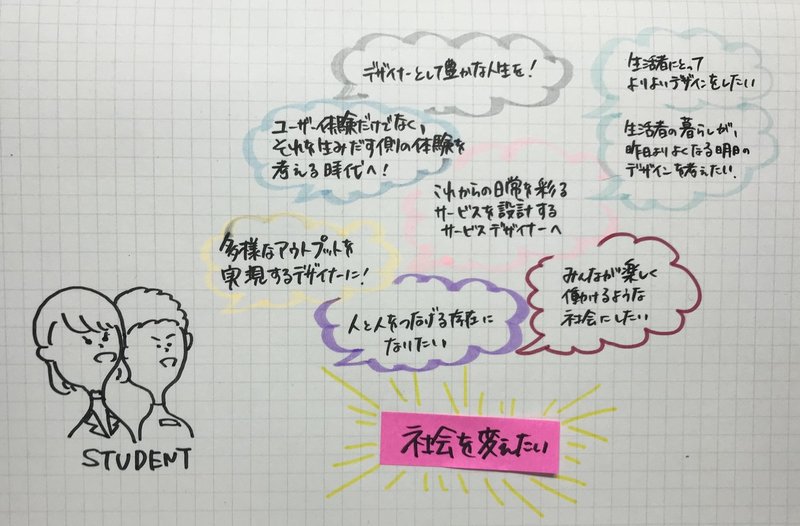 デザイナーとして豊かな人生を!
生活者にとって
よりよいデザインをしたい
ユーザー体験だけでなく、
それを生みだす側の体験を
考える時代へ!
生活者の暮らしが、
昨日よりよくなる明日の
デザインを考えたい。
これからの日常を彩る
サービスを設計する
サービスデザイナーへ
多様なアウトプットを
実現するデザイナーに!
みんなが楽しく
働けるような
社会にしたい
人と人をつなげる存在に
なりたい
社会を変えたい
STUDENT